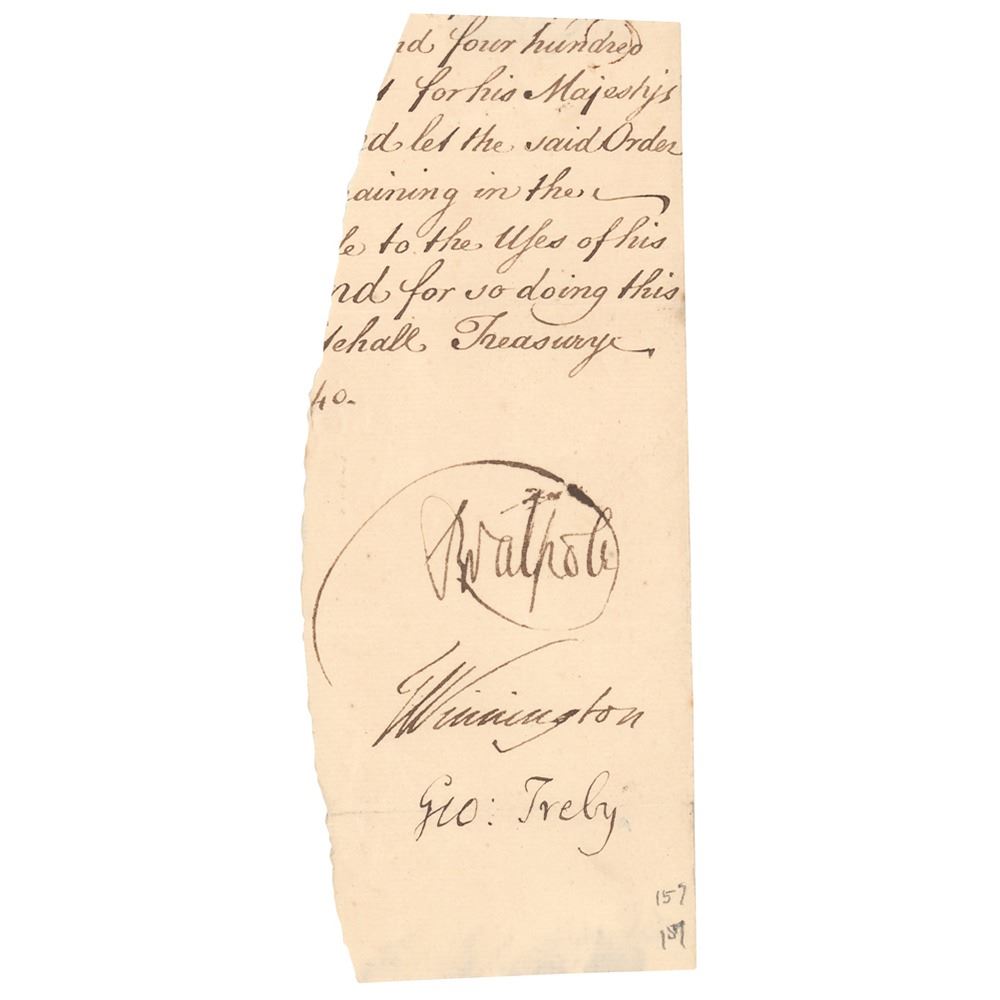 nd four hundred
t for his Majesty's
nd let the said Order
aining in the
le to the Uses of his
nd for so doing this
tehall Treasury
40.
RWalpole
TWinnington
Geo: Treby
157
157